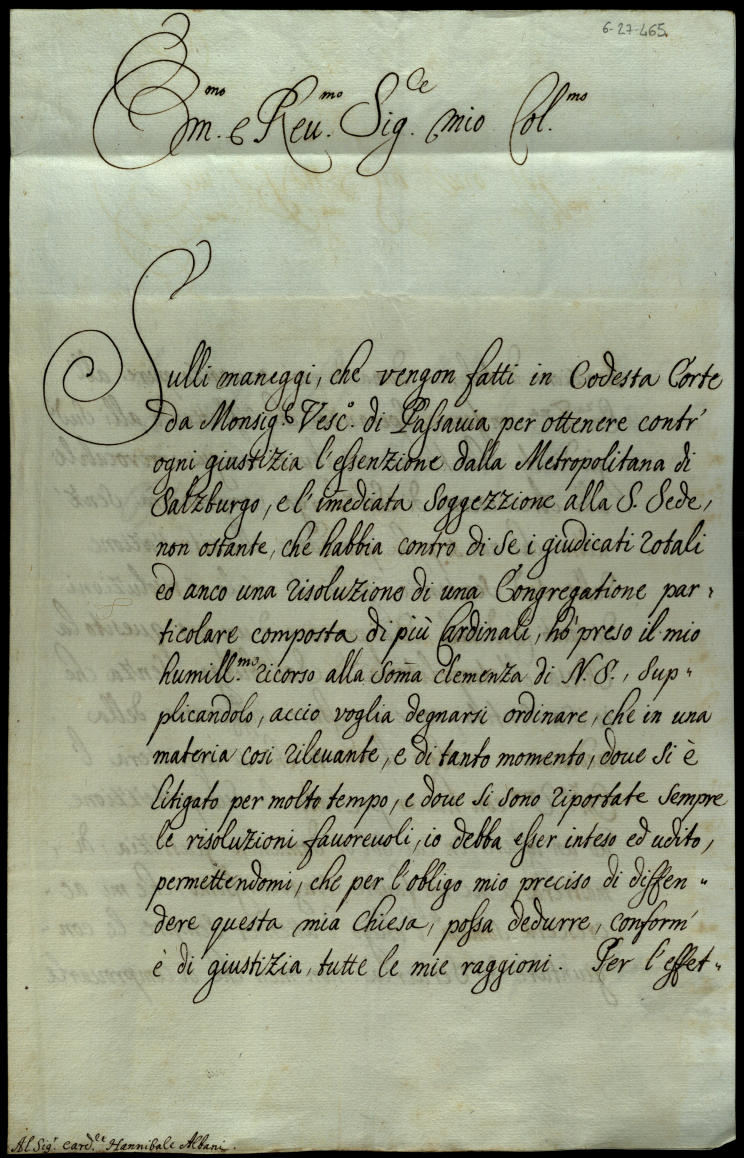 6-27-465.
Em.mo e Reu.mo Sig.re mio Col.mo
Sulli maneggi, che vengon fatti in Codesta Corte
da Monsig.r Vesc.o di Passauia per ottenere contr'
ogni giustizia l'essenzione dalla Metropolitana di
Salzburgo, e l'im̅ediata soggezzione alla S. Sede,
non ostante, che habbia contro di se i giudicati rotali
ed anco una risoluzione di una Congregatione par-
ticolare composta di più Cardinali, hò preso il mio
humill.mo ricorso alla som̅a clemenza di N. S., sup-
plicandolo, accio voglia degnarsi ordinare, che in una
materia cosi rileuante, e di tanto momento, doue si è
litigato per molto tempo, e doue si sono riportate sempre
le risoluzioni fauoreuoli, io debba esser inteso ed udito,
permettendomi, che per l'obligo mio preciso di diffen-
dere questa mia Chiesa, possa dedurre, conform'
è di giustizia, tutte le mie raggioni. Per l'effet-
Al Sig.r Card.le Hannibale Albani.